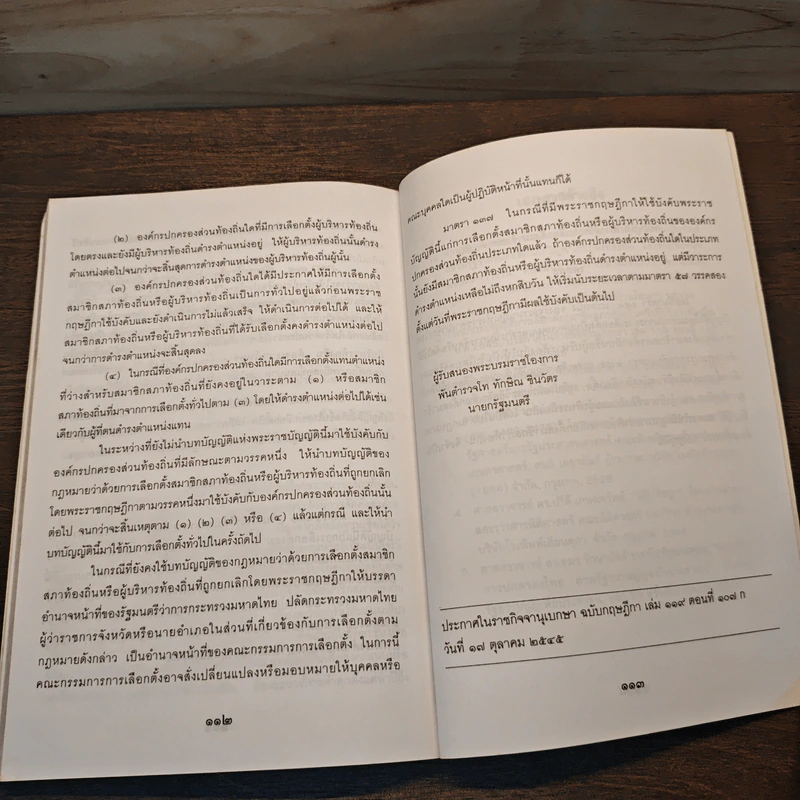 (๒) องค์กรปกครองส่วนท้องถิ่นใดที่มีการเลือกตั้งผู้บริหารท้องถิ่น
โดยตรงและยังมีผู้บริหารท้องถิ่นดำรงตำแหน่งอยู่ ให้ผู้บริหารท้องถิ่นนั้นดำรง
ตำแหน่งต่อไปจนกว่าจะสิ้นสุดการดำรงตำแหน่งของผู้บริหารท้องถิ่นผู้นั้น
(๓) องค์กรปกครองส่วนท้องถิ่นใดได้มีประกาศให้มีการเลือกตั้ง
สมาชิกสภาท้องถิ่นหรือผู้บริหารท้องถิ่นเป็นการทั่วไปอยู่แล้วก่อนพระราช
กฤษฎีกาใช้บังคับและยังดำเนินการไม่แล้วเสร็จ ให้ดำเนินการต่อไปได้ และให้
สมาชิกสภาท้องถิ่นหรือผู้บริหารท้องถิ่นที่ได้รับเลือกตั้งคงดำรงตำแหน่งต่อไป
จนกว่าการดำรงตำแหน่งจะสิ้นสุดลง
(๔) ในกรณีที่องค์กรปกครองส่วนท้องถิ่นใดมีการเลือกตั้งแทนตำแหน่ง
ที่ว่างสำหรับสมาชิกสภาท้องถิ่นที่ยังคงอยู่ในวาระตาม (๑) หรือสมาชิก
สภาท้องถิ่นที่มาจากการเลือกตั้งทั่วไปตาม (๓) โดยให้ดำรงตำแหน่งต่อไปได้เช่น
เดียวกับผู้ที่ตนดำรงตำแหน่งแทน
ในระหว่างที่ยังไม่นำบทบัญญัติแห่งพระราชบัญญัตินี้มาใช้บังคับกับ
องค์กรปกครองส่วนท้องถิ่นที่มีลักษณะตามวรรคหนึ่ง ให้นำบทบัญญัติของ
กฎหมายว่าด้วยการเลือกตั้งสมาชิกสภาท้องถิ่นหรือผู้บริหารท้องถิ่นที่ถูกยกเลิก
โดยพระราชกฤษฎีกาตามวรรคหนึ่งมาใช้บังคับกับองค์กรปกครองส่วนท้องถิ่นนั้น
ต่อไป จนกว่าจะสิ้นเหตุตาม (๑) (๒) (๓) หรือ (๔) แล้วแต่กรณี และให้นำ
บทบัญญัตินี้มาใช้กับการเลือกตั้งทั่วไปในครั้งถัดไป
ในกรณีที่ยังคงใช้บทบัญญัติของกฎหมายว่าด้วยการเลือกตั้งสมาชิก
สภาท้องถิ่นหรือผู้บริหารท้องถิ่นที่ถูกยกเลิกโดยพระราชกฤษฎีกาให้บรรดา
อำนาจหน้าที่ของรัฐมนตรีว่าการกระทรวงมหาดไทย ปลัดกระทรวงมหาดไทย
ผู้ว่าราชการจังหวัดหรือนายอำเภอในส่วนที่เกี่ยวข้องกับการเลือกตั้งตาม
กฎหมายดังกล่าว เป็นอำนาจหน้าที่ของคณะกรรมการการเลือกตั้ง ในการนี้
คณะกรรมการการเลือกตั้งอาจสั่งเปลี่ยนแปลงหรือมอบหมายให้บุคคลหรือ
๑๑๒
คณะบุคคลใดเป็นผู้ปฏิบัติหน้าที่นั้นแทนก็ได้
มาตรา ๑๓๗ ในกรณีที่มีพระราชกฤษฎีกาให้ใช้บังคับพระราช
บัญญัตินี้แก่การเลือกตั้งสมาชิกสภาท้องถิ่นหรือผู้บริหารท้องถิ่นขององค์กร
ปกครองส่วนท้องถิ่นประเภทใดแล้ว ถ้าองค์กรปกครองส่วนท้องถิ่นใดในประเภท
นั้นยังมีสมาชิกสภาท้องถิ่นหรือผู้บริหารท้องถิ่นดำรงตำแหน่งอยู่ แต่มีวาระการ
ดำรงตำแหน่งเหลือไม่ถึงหกสิบวัน ให้เริ่มนับระยะเวลาตามมาตรา ๕๗ วรรคสอง
ตั้งแต่วันที่พระราชกฤษฎีกามีผลใช้บังคับเป็นต้นไป
ผู้รับสนองพระบรมราชโองการ
พันตำรวจโท ทักษิณ ชินวัตร
นายกรัฐมนตรี
ประกาศในราชกิจจานุเบกษา ฉบับกฤษฎีกา เล่ม ๑๑๙ ตอนที่ ๑๐๗ ก
วันที่ ๑๗ ตุลาคม ๒๕๔๕
๑๑๓